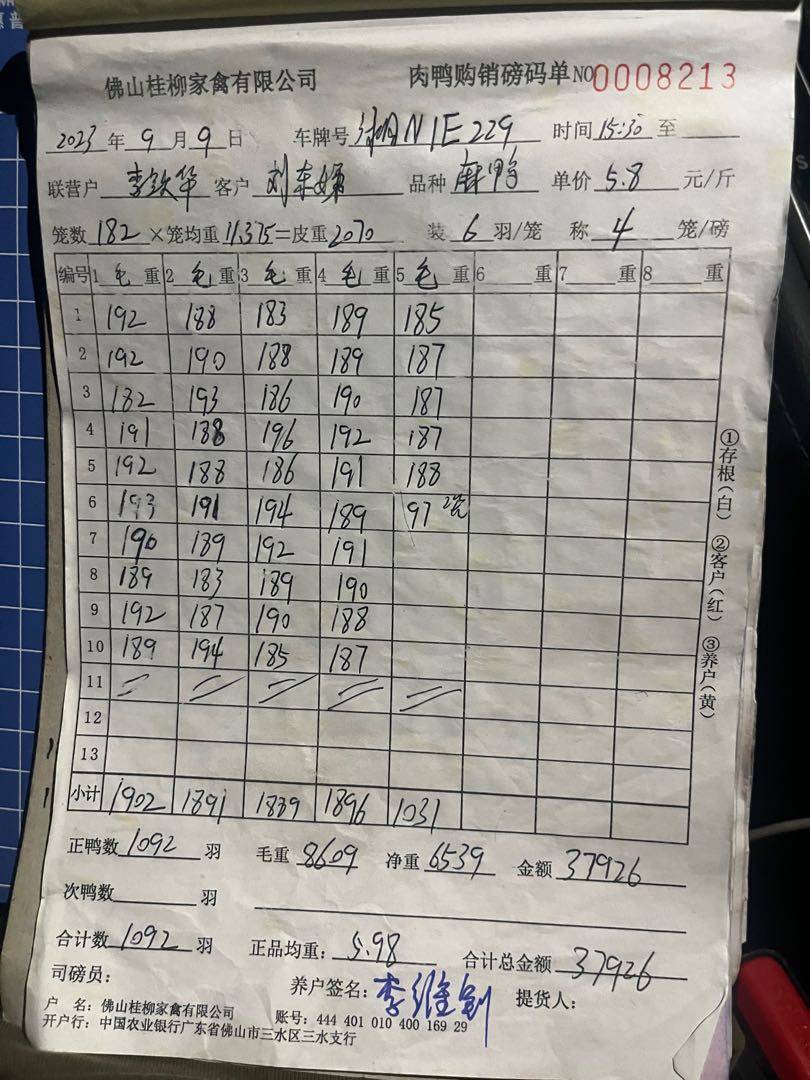 佛山桂柳家禽有限公司 肉鸭购销磅码单 NO 0008213
2023 年 9 月 9 日 车牌号 湘N1E229 时间 15:30 至
联营户 李铁华 客户 品种 麻鸭 单价 5.8 元/斤
笼数 182 ×笼均重 11.375 =皮重 2070 装 6 羽/笼 称 4 笼/磅
编号 1 毛 重 2 毛 重 3 毛 重 4 毛 重 5 毛 重 6 重 7 重 8 重
1 192 188 183 189 185
2 192 190 188 189 187
3 182 193 186 190 187
4 191 188 196 192 187
5 192 188 186 191 188
6 193 191 194 189 97 2笼
7 190 189 192 191
8 189 183 189 190
9 192 187 190 188
10 189 194 185 187
11
12
13
小计 1902 1891 1889 1896 1031
正鸭数 1092 羽 毛重 8609 净重 6539 金额 37926
次鸭数 羽
合计数 1092 羽 正品均重: 5.98 合计总金额 37926
司磅员: 养户签名: 李维钊 提货人:
户 名: 佛山桂柳家禽有限公司 账号: 444 401 010 400 169 29
开户行: 中国农业银行广东省佛山市三水区三水支行
①存根(白) ②客户(红) ③养户(黄)